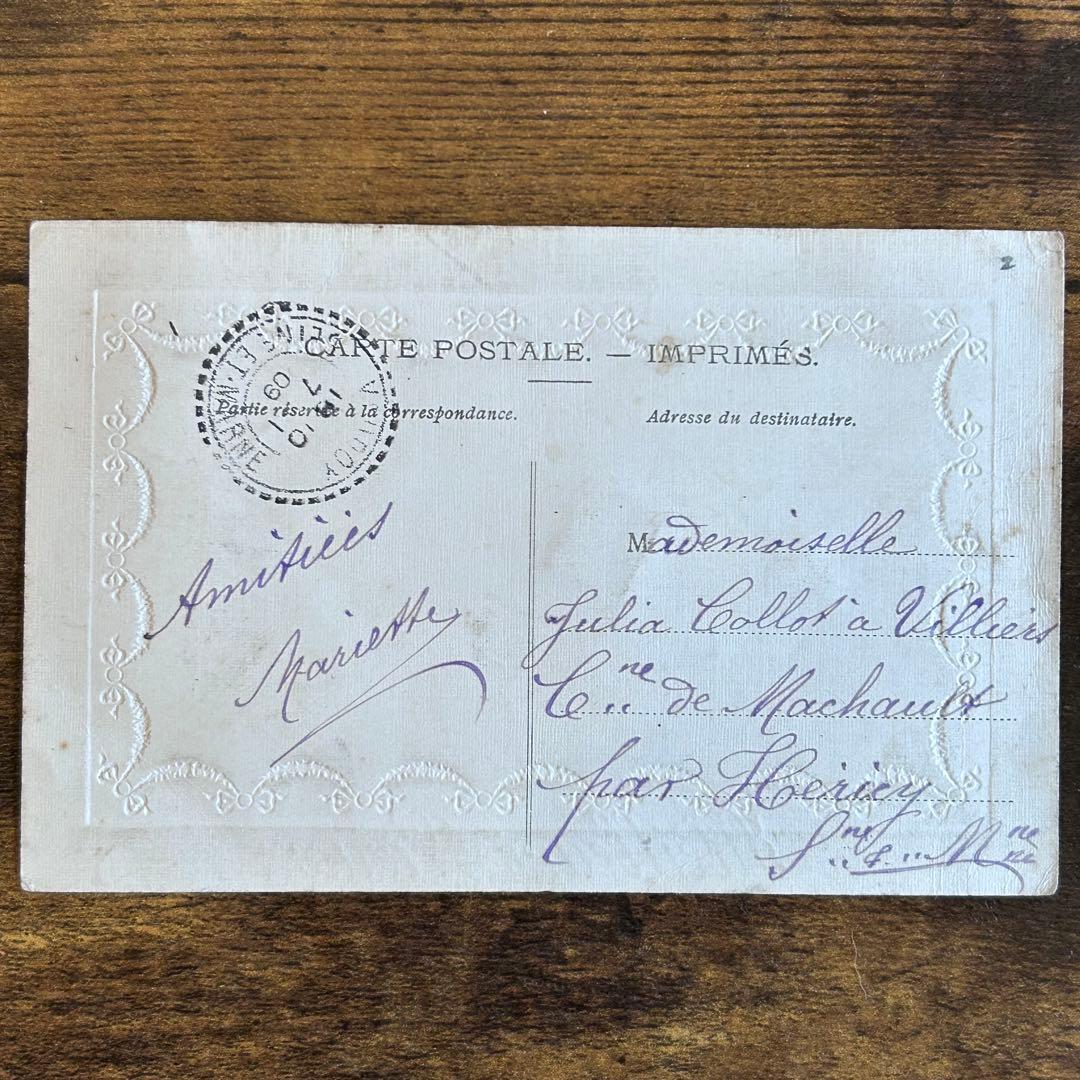 CARTE POSTALE. — IMPRIMÉS.
Partie réservée à la correspondance.
Adresse du destinataire.
SEINE-ET-MARNE
09
Amitiéis
Mariette
Mademoiselle
Julia Collot à Villiers
Cne de Machault
par Héricy
Sne & Mne
2